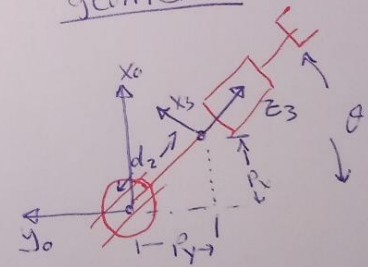 x₀
x₃
z₃
θ
d₂
Pₓ
y₀
Py